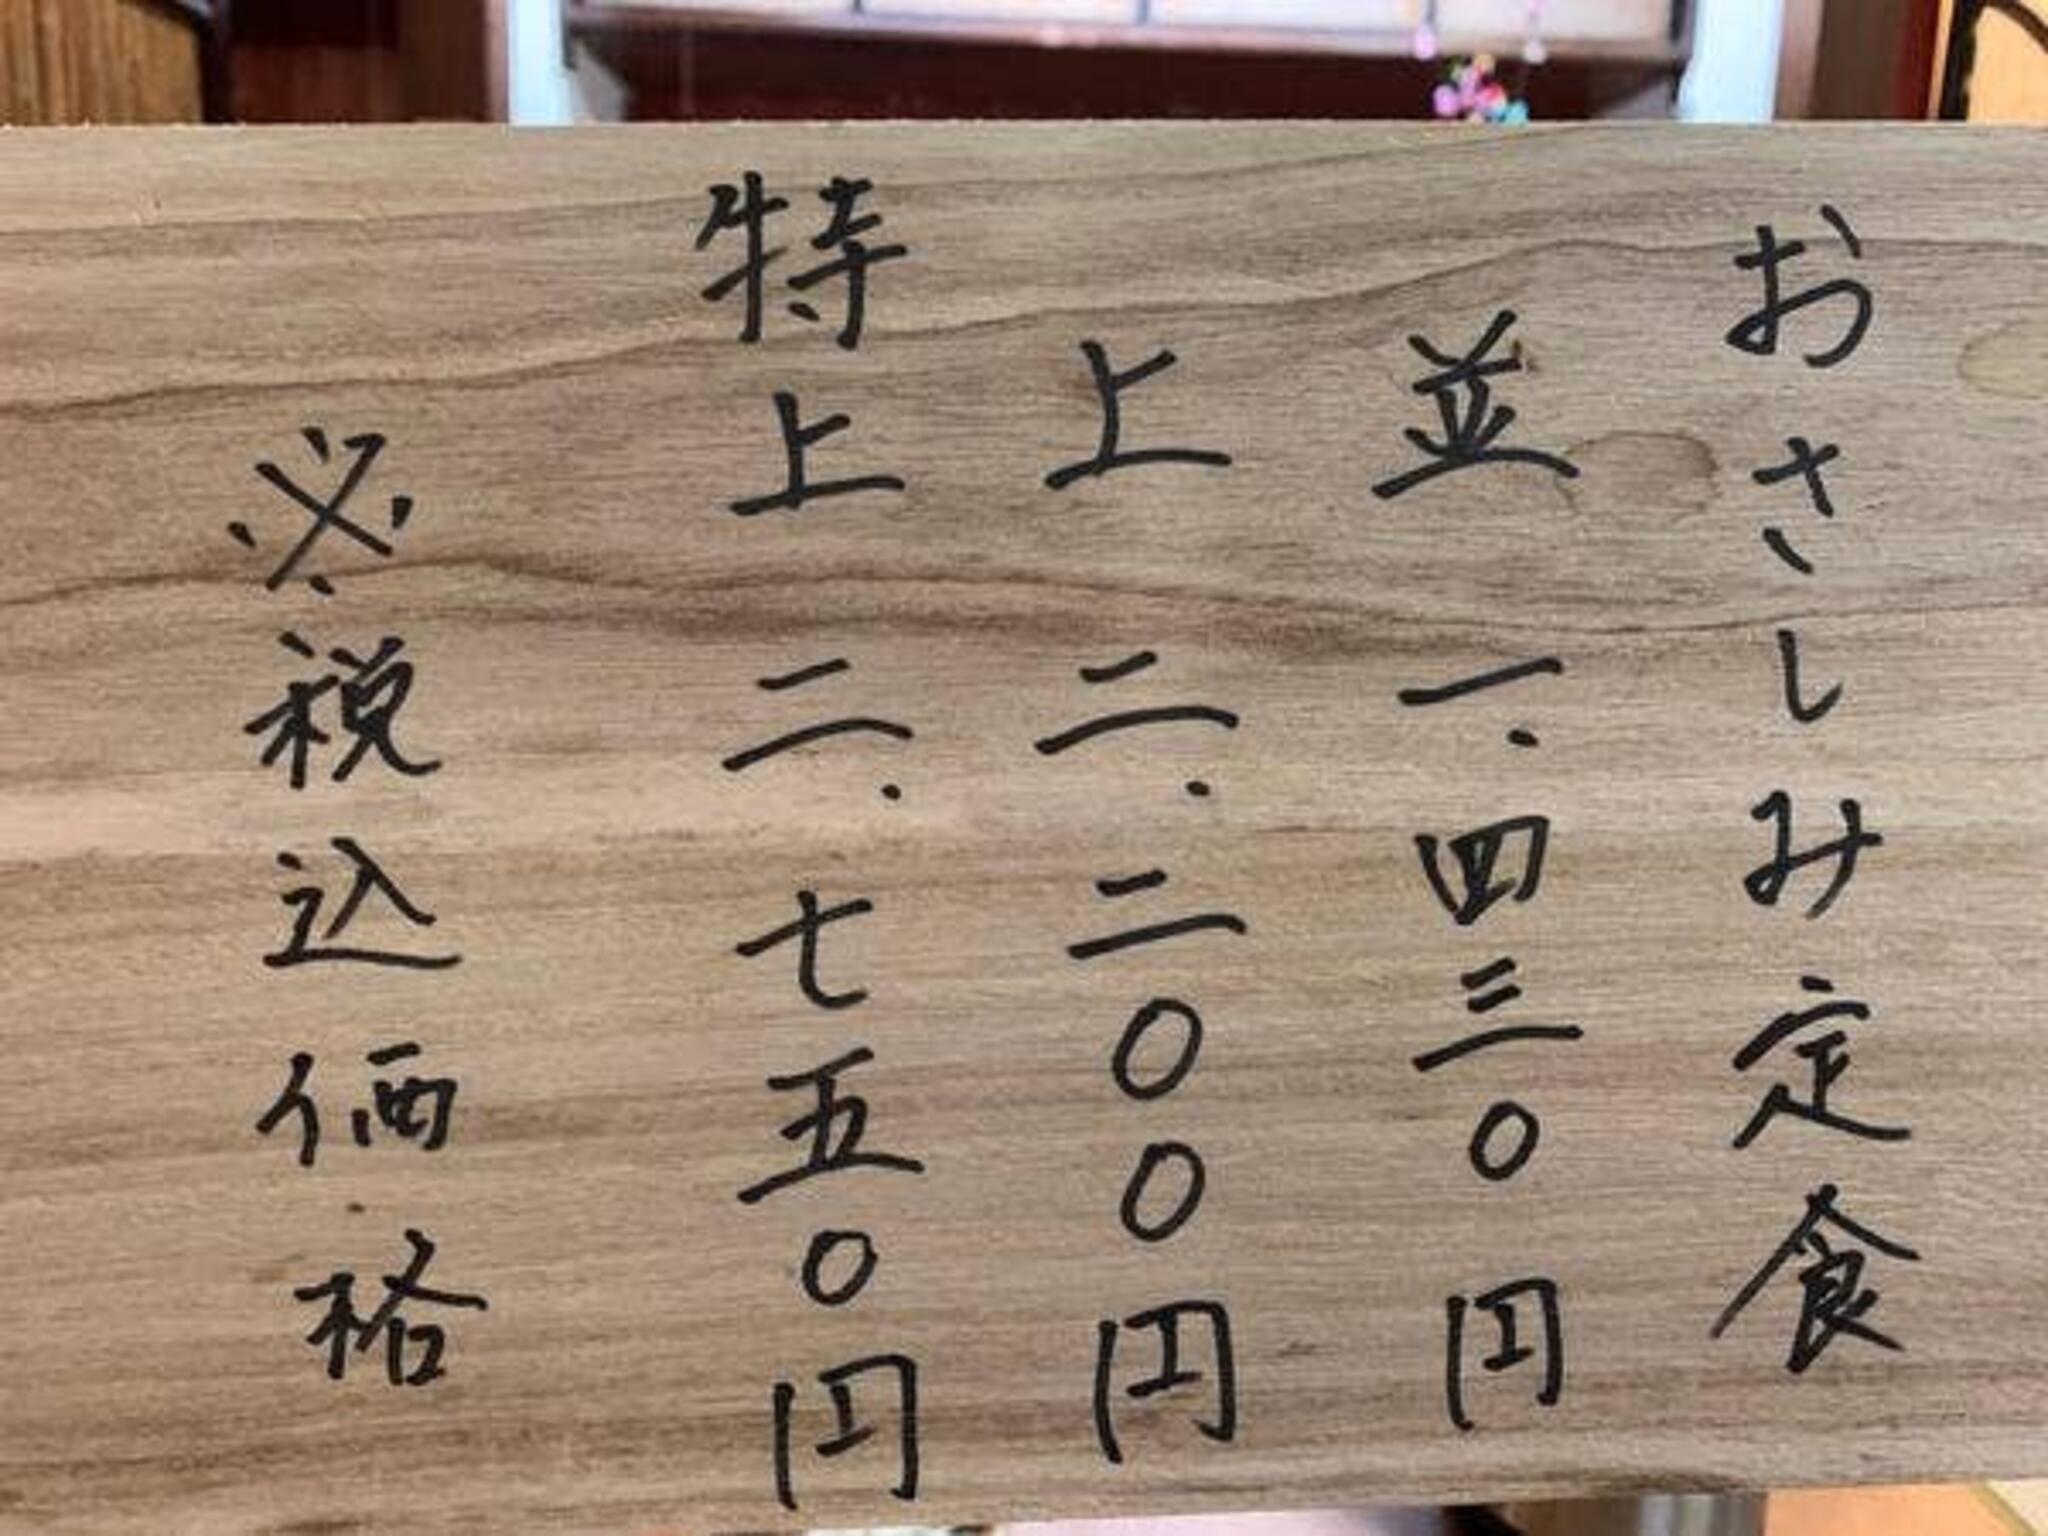 おさしみ定食
並 一.四三〇円
上 二.二〇〇円
特上 二.七五〇円
※税込価格